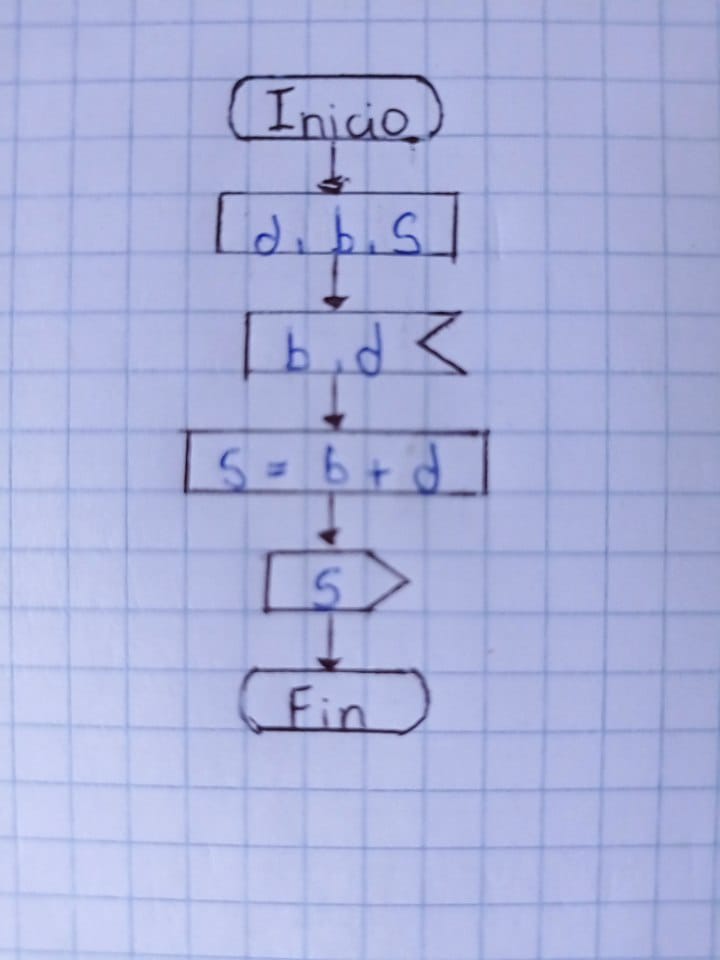 Inicio
d, b, S
b, d
S = b + d
S
Fin